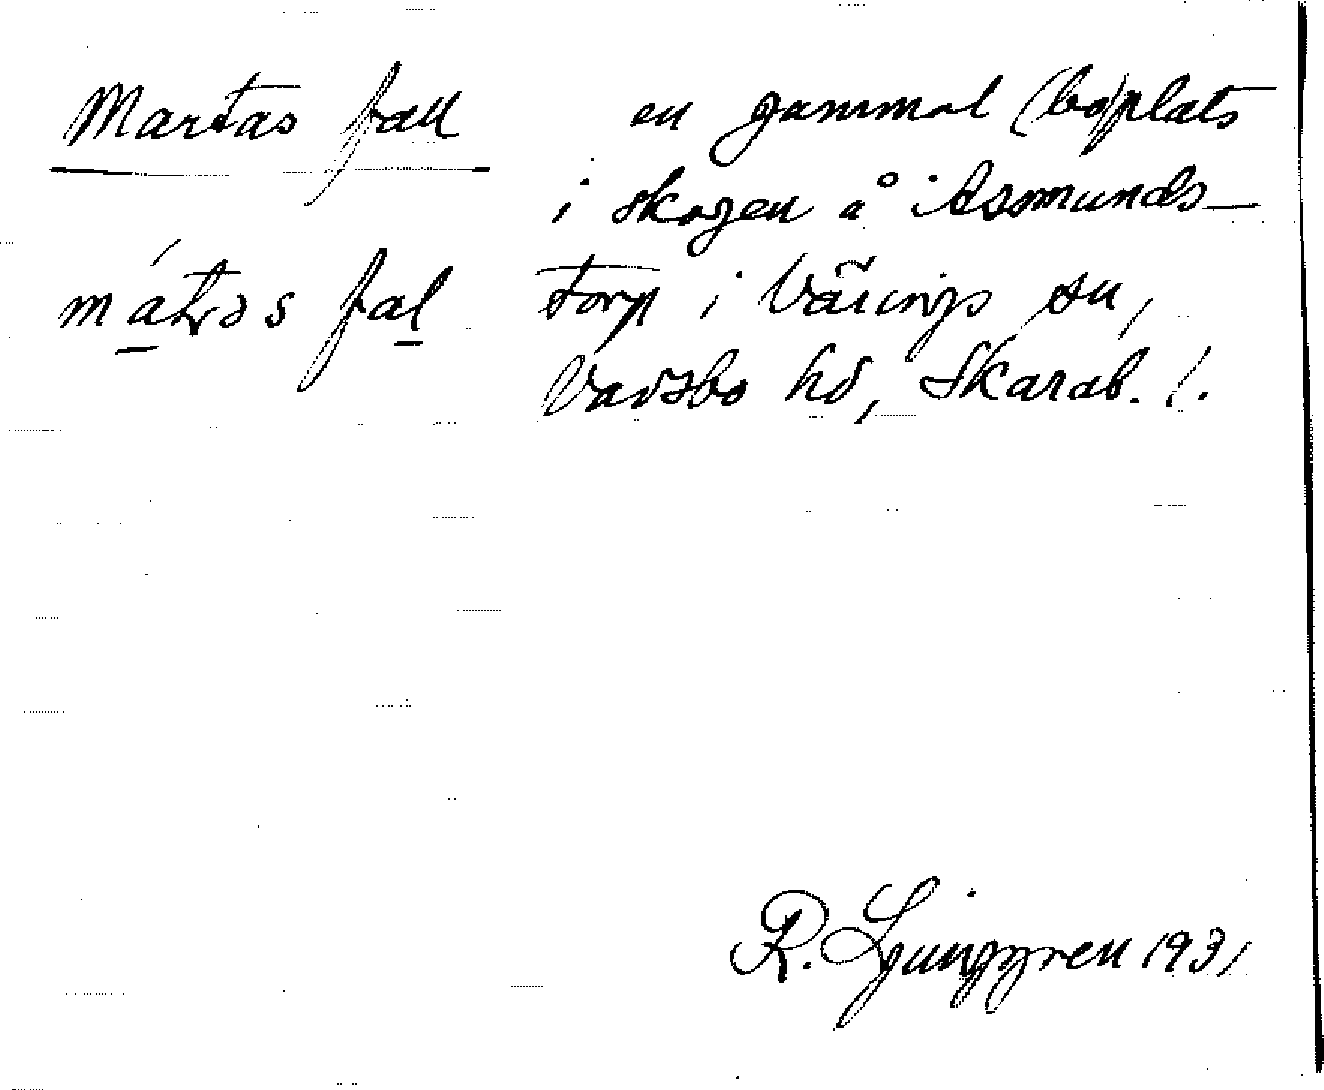 Martas fall en gammal (bo)plats
i skogen å Åsmunds-
torp i Värings sn,
Vadsbo hd, Skarab. l.
R. Ljunggren 1931